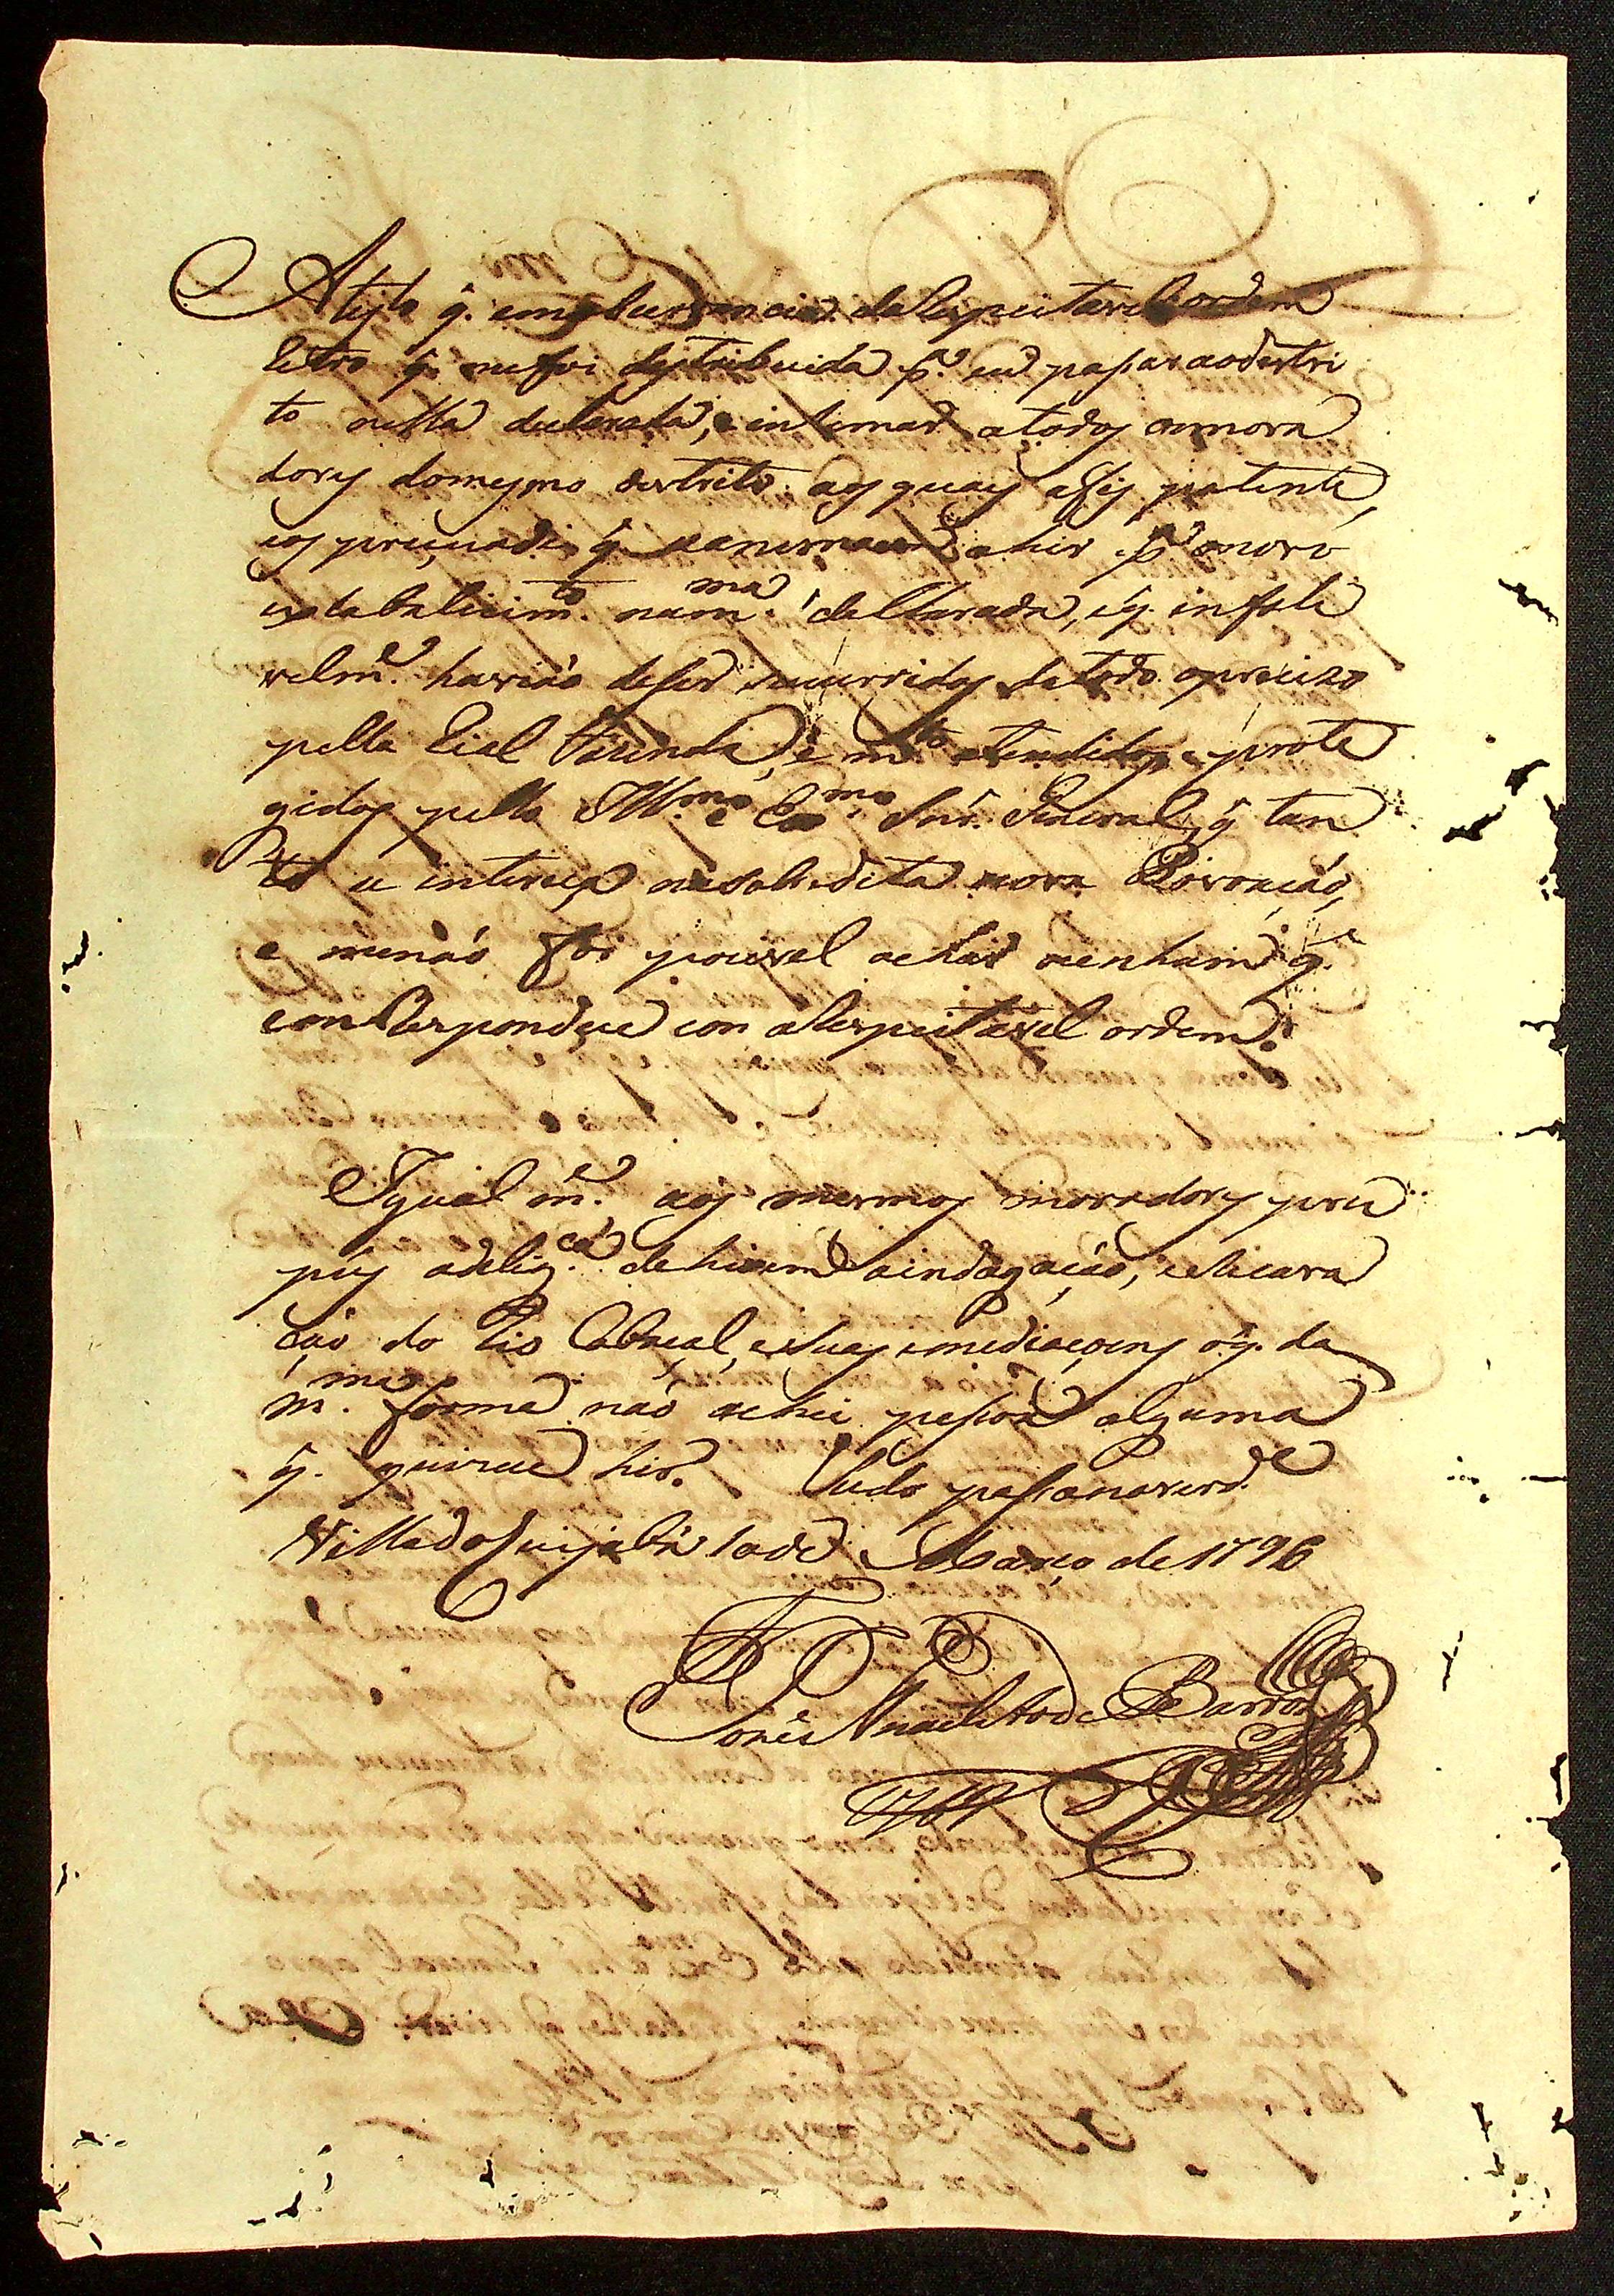 Atesto q̃. em observancia da Respeitavel ordem
retro q̃. me foi destribuida p.ª eu pasar ao destri
to nella declarado, e intimar a todos os mora
dores do mesmo destrito aos quaes a fis patente,
e os precuadi q̃. hir p.ª o novo
estabalicim.to na m.ma declarada, e q̃. infali
velm.e havião de ser sucurridos de todo o preciso
pella Rial Fazenda, e m.to atendidos, e prote
gidos pello Ill.mo e Ex.mo Snr. General, q̃ tan
to se intereça na sobredita nova Povoação,
e me não foi pocivel achar nenhum q̃.
conRespondece con a Respeitavel ordem.
Igual m.e aos mesmos moradores pru
pus a delig.ca de hirem a indagação, e
ção do Rio Cabaçal, e suas emediaçoens o q̃. da
m.ma forma não achei pesoa alguma
q̃. quizece hir. Tudo pasa na verd.e
Villa do Cuijabá 10 de Março de 1796
Jozé Anacleto de Barros